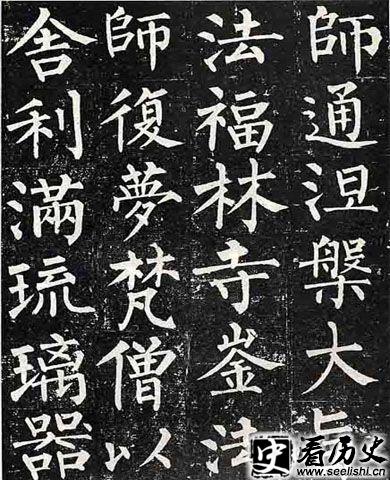 師通涅槃大
法福林寺崟法
師復夢梵僧以
舍利滿琉璃器
史 看历史
www.seelishi.cn